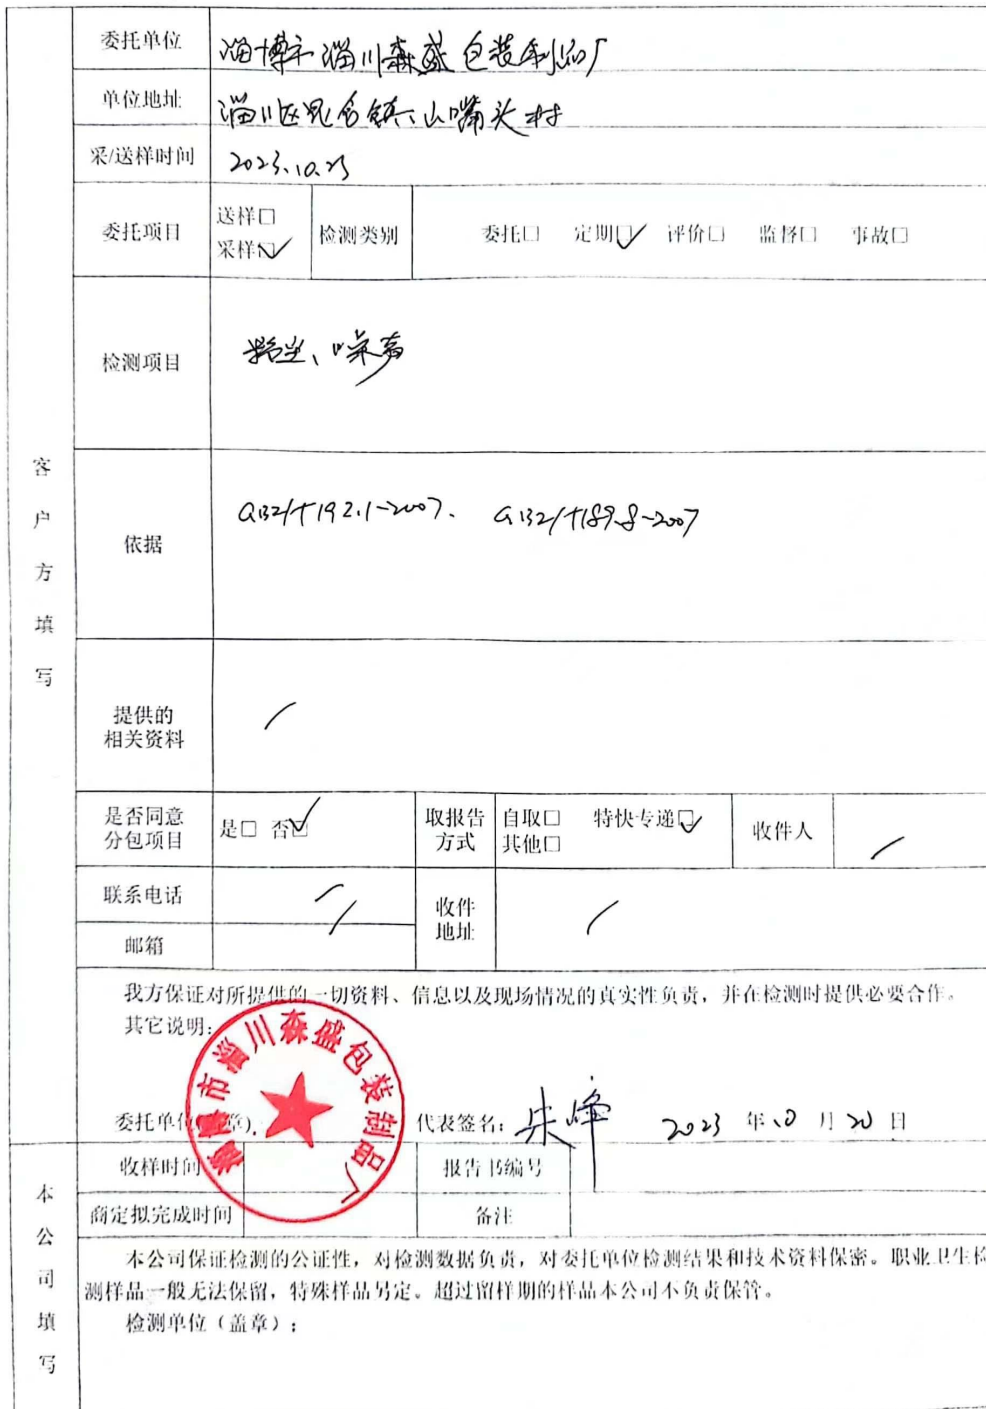 委托单位 淄博市淄川森盛包装制品厂
单位地址 淄川区昆仑镇山嘴头村
采/送样时间 2023.10.25
委托项目 送样□ 采样☑ 检测类别 委托□ 定期☑ 评价□ 监督□ 事故□
检测项目 粉尘、噪声
客户方填写
依据 GBZ/T192.1-2007. GBZ/T189.8-2007
提供的
相关资料 /
是否同意
分包项目 是□ 否☑ 取报告
方式 自取□ 特快专递☑
其他□ 收件人 /
联系电话 / 收件
地址 /
邮箱 /
我方保证对所提供的一切资料、信息以及现场情况的真实性负责，并在检测时提供必要合作。
其它说明：
淄博市淄川森盛包装制品厂
委托单位(盖章). 代表签名： 2023 年 10 月 20 日
本公司填写
收样时间 报告书编号
商定拟完成时间 备注
本公司保证检测的公证性，对检测数据负责，对委托单位检测结果和技术资料保密。职业卫生检
测样品一般无法保留，特殊样品另定。超过留样期的样品本公司不负责保管。
检测单位（盖章）：